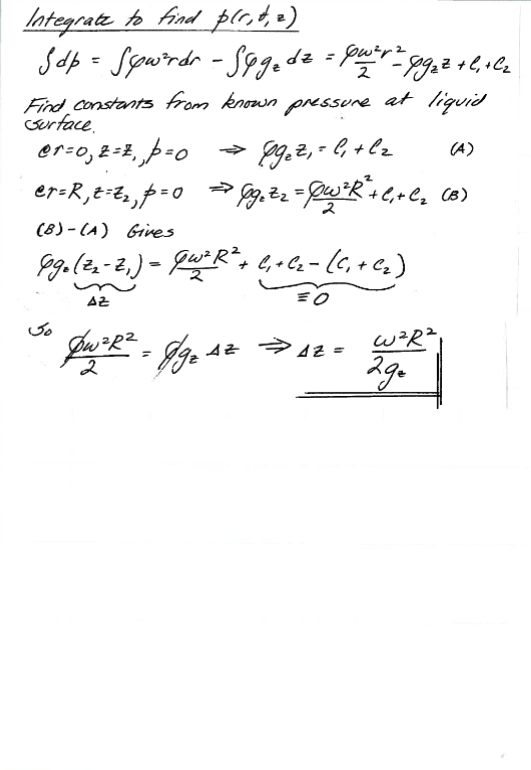 Integrate to find p(r,θ,z)
∫dp = ∫ρω²rdr - ∫ρg_z dz = ρω²r²/2 - ρg_z z + C₁ + C₂
Find constants from known pressure at liquid
surface.
@r=0, z=z₁, p=0 ⇒ ρg_z z₁ = C₁ + C₂ (A)
@r=R, z=z₂, p=0 ⇒ ρg_z z₂ = ρω²R²/2 + C₁ + C₂ (B)
(B)-(A) Gives
ρg_z(z₂-z₁) = ρω²R²/2 + C₁ + C₂ - (C₁ + C₂)
Δz ≡0
So ρω²R²/2 = ρg_z Δz ⇒ Δz = ω²R²/2g_z